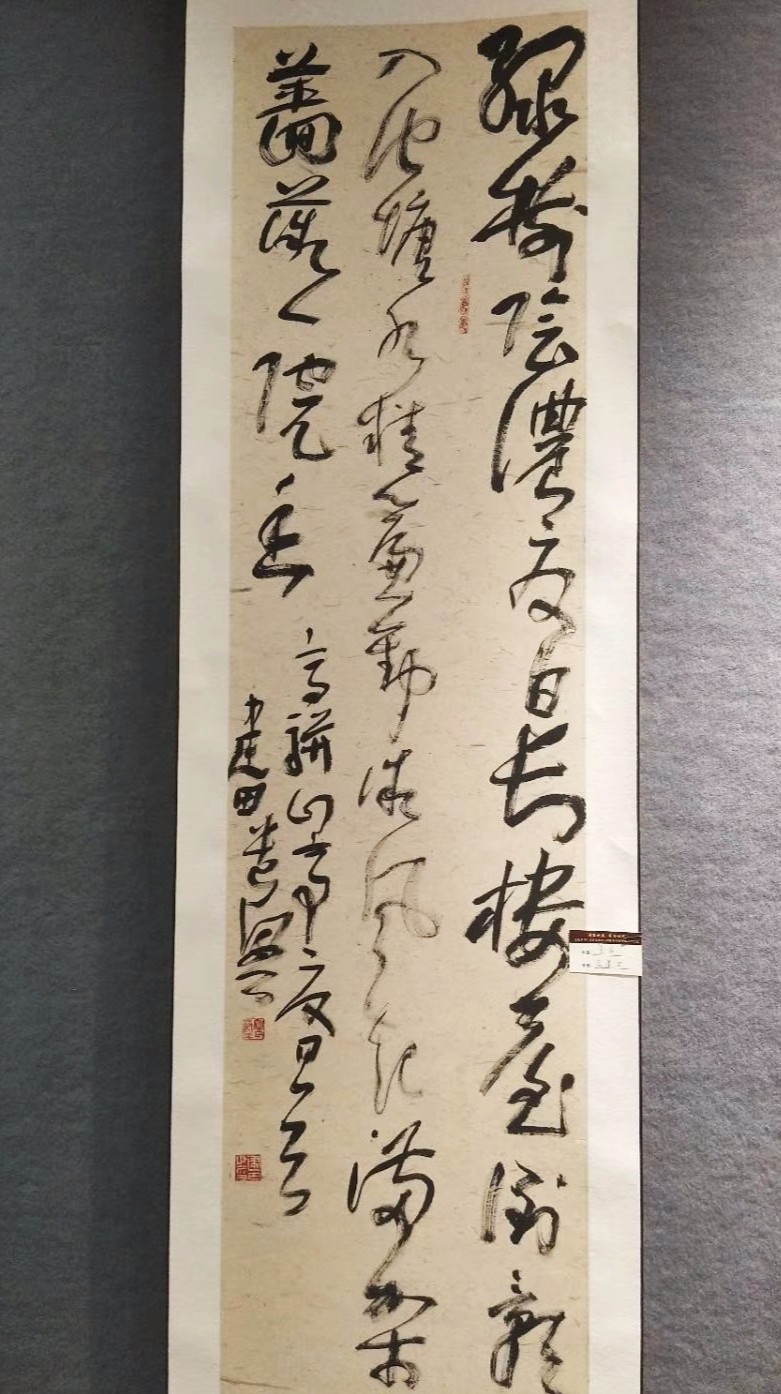 綠樹陰濃夏日長樓臺倒影
入池塘水精簾動微風起滿架
薔薇一院香
高駢山亭夏日
建田